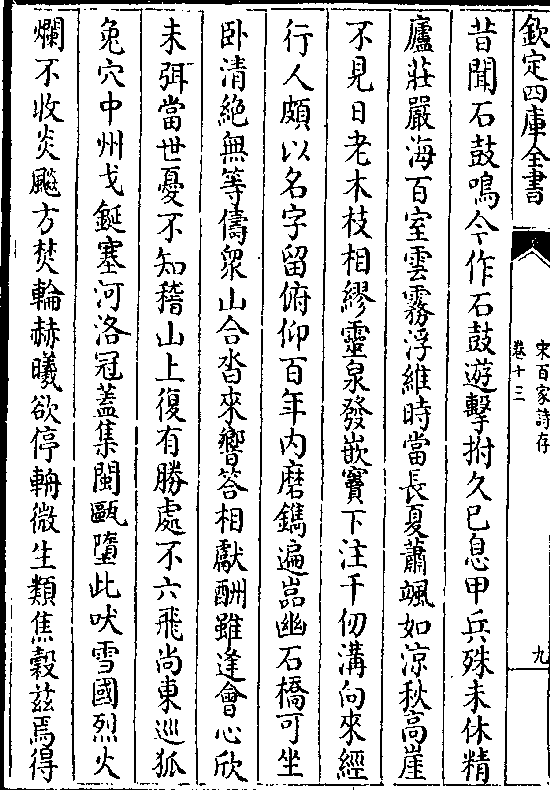 欽定四庫全書
宋百家詩存
卷十三
九
昔聞石鼓鳴今作石鼓遊擊拊久已息甲兵殊未休精
廬莊嚴海百室雲霧浮維時當長夏蕭颯如涼秋高崖
不見日老木枝相繆靈泉發嵌竇下注千仞溝向來經
行人頗以名字留俯仰百年內磨鐫遍嵓幽石橋可坐
卧清絶無等儔衆山合沓來響答相獻酬雖逢會心欣
未弭當世憂不知稽山上復有勝處不六飛尚東巡狐
兔穴中州戈鋋塞河洛冠蓋集閩甌墮此吠雪國烈火
爛不收炎飈方焚輪赫曦欲停輈微生類焦穀兹焉得